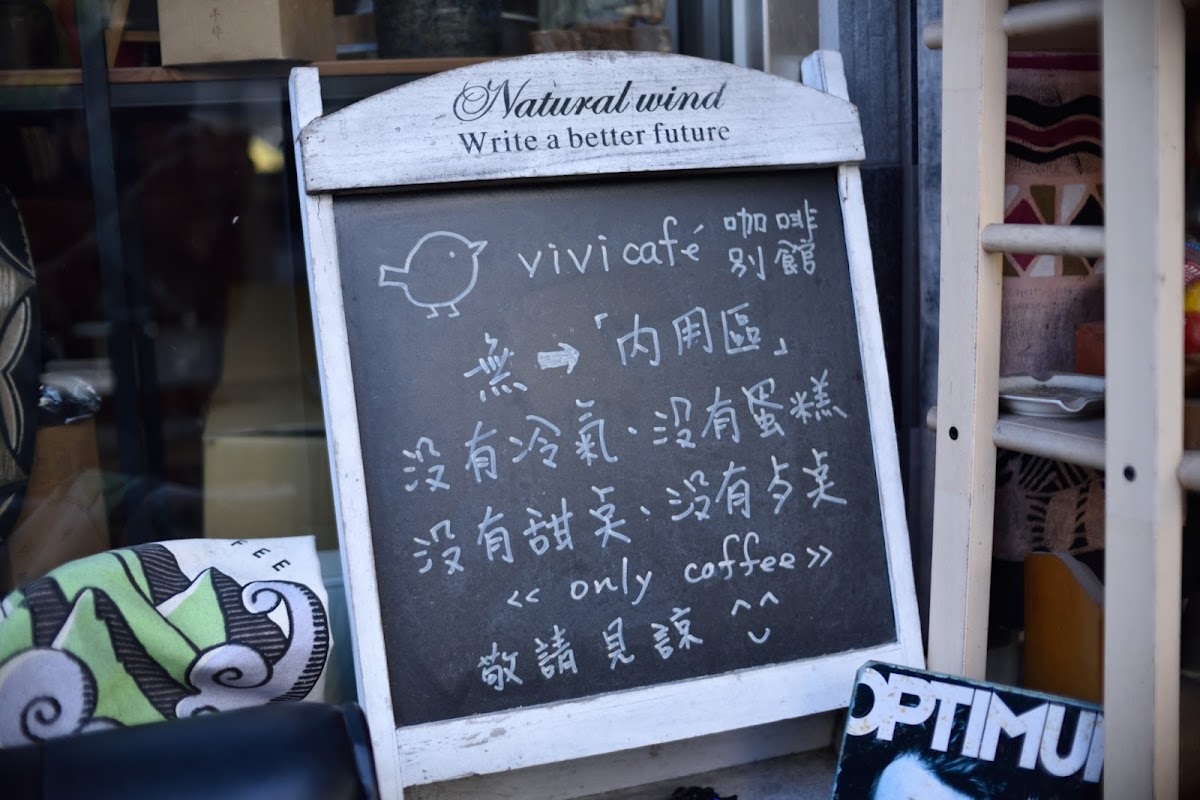 Natural wind
Write a better future
vivi café 咖啡
別館
無→「內用區」
没有冷氣、没有蛋糕
没有甜桌、没有歺桌
<< only coffee >>
敬請見諒 ^^
FEE
OPTIMU